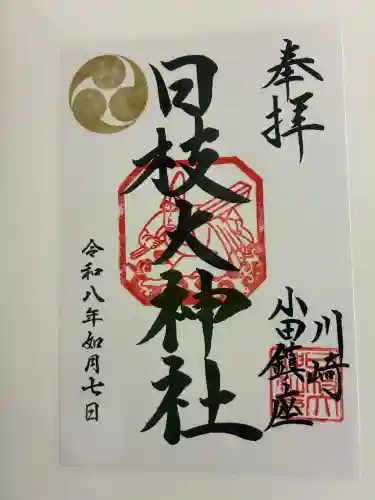 奉拝
川崎
小田鎮座
日枝大神社
令和八年如月七日